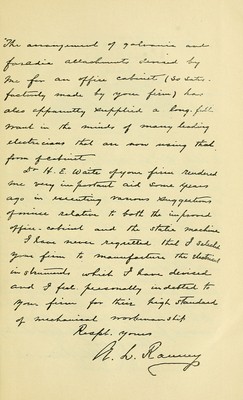 The arrangement of galvanic and
faradic attachments devised by
me for an office cabinet (so satis-
factorily made by your firm) has
also apparently supplied a long-felt
want in the minds of many leading
electricians that are now using that
form of cabinet.
Dr H. E. Waite of your firm rendered
me very important aid some years
ago in executing various suggestions
of mine relation to both the improved
office-cabinet and the static machine
I have never regretted that I selected
your firm to manufacture the electrical
instruments which I have devised
and I feel personally indebted to
your firm for their high standard
of mechanical workmanship
Respt. yours
A. L. Ranney